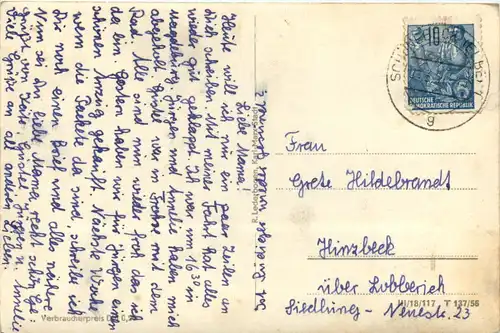 Liebe Mama!
Heute will ich nur ein paar Zeilen an
Dich schreiben. Mit meiner Fahrt hat alles
wieder gut geklappt. Ich war um 16³⁰ in
Magdeburg. Jürgen und Annelie haben mich
abgeholt. Günter war in Frohse mit dem
Rad. Alle sind nun wieder froh das ich
da bin. Gestern haben wir für Jürgen ein
schönen Anzug gekauft. Nächste Woche
wenn die Packete da sind, schreibe ich
Dir noch einen Brief und alles nähere
Nun sei Du, liebe Mama, recht schön ge-
grüßt von Käte Günter Jürgen u. Annelie
Viele Grüße an all anderen Lieben.
Verbraucherpreis D
DEUTSCHE
DEMOKRATISCHE REPUBLIK
10
g
Frau
Grete Hildebrandt
Hinzbeck
über Lobberich
Siedlung - Neuestr. 23
III/18/117 T 137/56